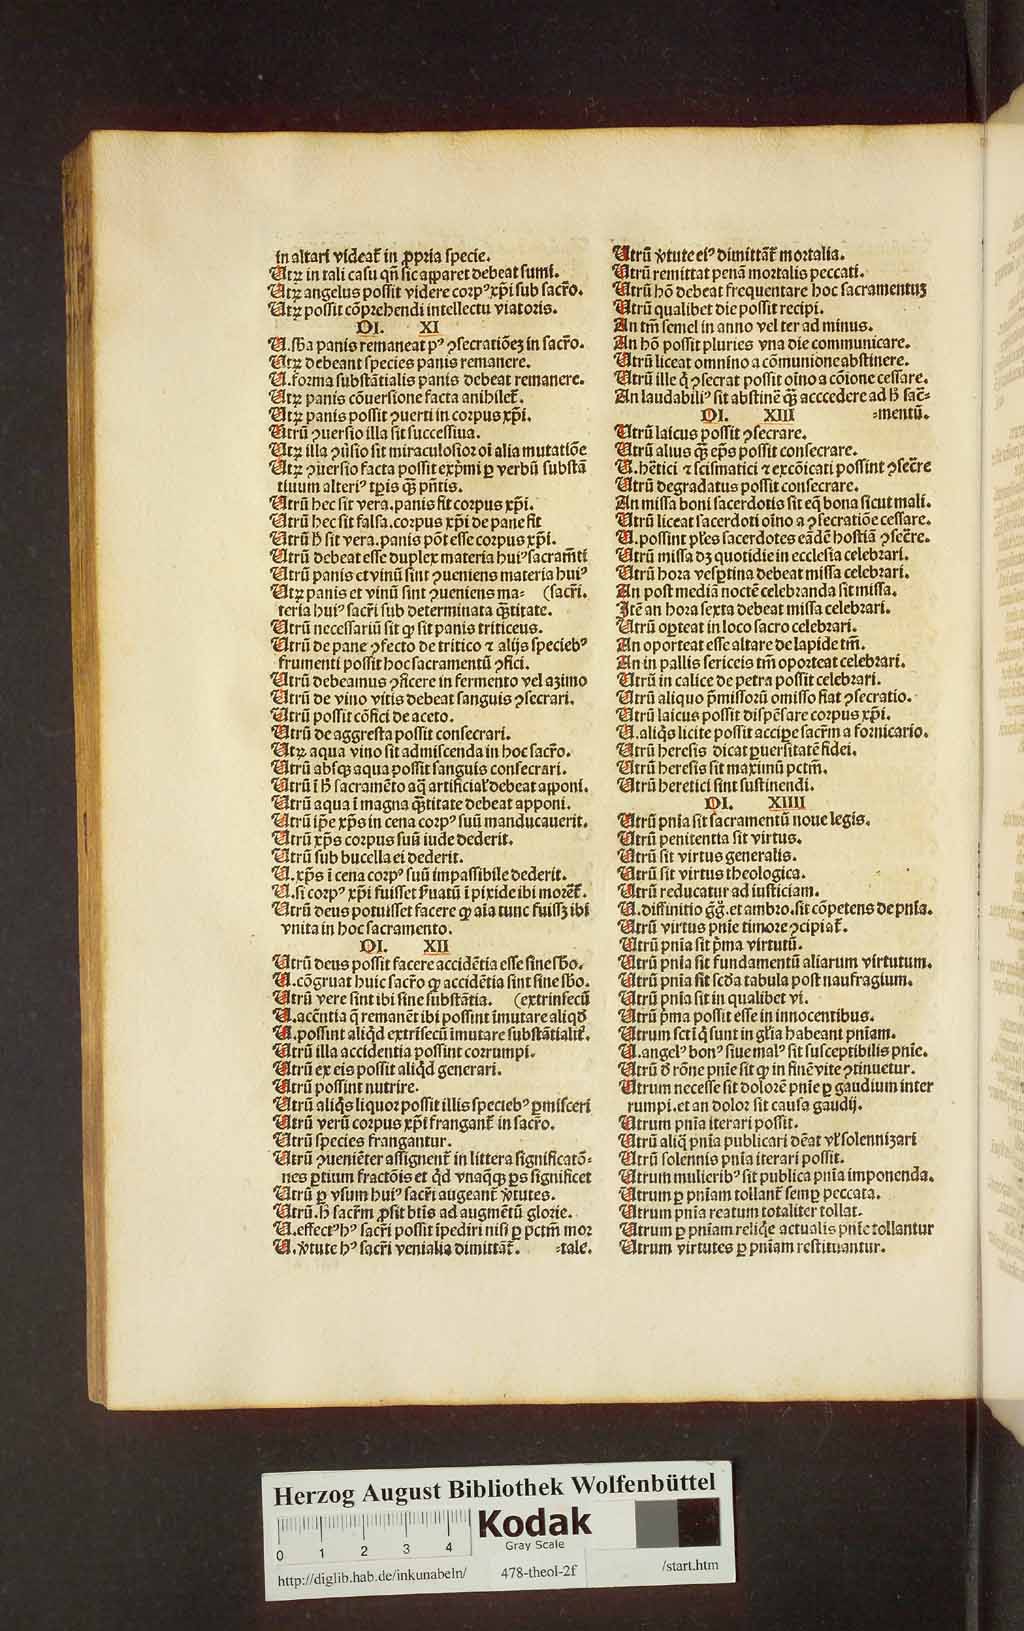 in altari videat᷑ in ꝓpria specie.
Utꝝ in tali casu qñ sic apparet debeat sumi.
Utꝝ angelus possit videre corpꝰ xp̄i sub sacr̄o.
Utꝝ possit cōprehendi intellectu viatoris.
DI. XI
U. sb̄a panis remaneat pꝰ ꝯsecratiōeꝫ in sacr̄o.
Utꝝ debeant species panis remanere.
U. forma substātialis panis debeat remanere.
Utꝝ panis cōuersione facta anihilet᷑.
Utꝝ panis possit ꝯuerti in corpus xp̄i.
Utrū ꝯuersio illa sit successiua.
Utꝝ illa ꝯūsio sit miraculosior oī alia mutatiōe
Utꝝ ꝯuersio facta possit exp̄mi ꝑ verbū substā
tiuum alteriꝰ tp̄is q̄ꝫ pn̄tis.
Utrū hec sit vera. panis fit corpus xp̄i.
Utrū hec sit falsa. corpus xp̄i de pane fit
Utrū h̄ sit vera. panis pōt esse corpus xp̄i.
Utrū debeat esse duplex materia huiꝰ sacram̄ti
Utrū panis et vinū sint ꝯueniens materia huiꝰ
Utꝝ panis et vinū sint ꝯueniens ma⸗ (sacr̄i.
teria huiꝰ sacr̄i sub determinata q̄titate.
Utrū necessariū sit ꝙ sit panis triticeus.
Utrū de pane ꝯfecto de tritico ⁊ alijs speciebꝰ
frumenti possit hoc sacramentū ꝯfici.
Utrū debeamus ꝯficere in fermento vel azimo
Utrū de vino vitis debeat sanguis ꝯsecrari.
Utrū possit cōfici de aceto.
Utrū de aggresta possit consecrari.
Utꝝ aqua vino sit admiscenda in hoc sacr̄o.
Utrū absqꝫ aqua possit sanguis consecrari.
Utrū ī h̄ sacramēto aq̄ artificial' debeat apponi.
Utrū aqua ī magna q̄titate debeat apponi.
Utrū ip̄e xp̄s in cena corpꝰ suū manducauerit.
Utrū xp̄s corpus suū iude dederit.
Utrū sub bucella ei dederit.
U. xp̄s ī cena corpꝰ suū impassibile dederit.
U. si corpꝰ xp̄i fuisset ẜuatū ī pixide ibi moret᷑.
Utrū deus potuisset facere ꝙ aīa tunc fuissꝫ ibi
vnita in hoc sacramento.
DI. XII
Utrū deus possit facere accidētia esse sine sb̄o.
U. cōgruat huic sacr̄o ꝙ accidētia sint sine sb̄o.
Utrū vere sint ibi sine substātia. (extrinsecū
U. accn̄tia q̄ remanēt ibi possint īmutare aliqd̄
U. possint aliqd̄ extrīsecū īmutare substātialit᷑.
Utrū illa accidentia possint corrumpi.
Utrū ex eis possit aliqd̄ generari.
Utrū possint nutrire.
Utrū aliq̄s liquor possit illis speciebꝰ ꝑmisceri
Utrū verū corpus xp̄i frangant᷑ in sacr̄o.
Utrū species frangantur.
Utrū ꝯueniēter assignent᷑ in littera significatō⸗
nes ꝑtium fractōis et qd̄ vnaq̄qꝫ ꝑs significet
Utrū ꝑ vsum huiꝰ sacr̄i augeant᷑ ꝟtutes.
Utrū. h̄ sacr̄m ꝓsit btīs ad augmētū glorie.
U. effectꝰ hꝰ sacr̄i possit īpediri nisi ꝑ pctm̄ mor
U. ꝟtute hꝰ sacr̄i venialia dimittāt᷑. ⸗tale.
Utrū ꝟtute eiꝰ dimittāt᷑ mortalia.
Utrū remittat penā mortalis peccati.
Utrū hō debeat frequentare hoc sacramentuꝫ
Utrū qualibet die possit recipi.
An tm̄ semel in anno vel ter ad minus.
An hō possit pluries vna die communicare.
Utrū liceat omnino a cōmunione abstinere.
Utrū ille q̇ ꝯsecrat possit oīno a cōione cessare.
An laudabiliꝰ sit abstinē q̄ꝫ acccedere ad h̄ sac̄⸗
DI. XIII ⸗mentū.
Utrū laicus possit ꝯsecrare.
Utrū alius q̄ꝫ ep̄s possit consecrare.
U. hētici ⁊ scismatici ⁊ excōicati possint ꝯsec̄re
Utrū degradatus possit consecrare.
An missa boni sacerdotis sit eq̄ bona sicut mali.
Utrū liceat sacerdoti oīno a ꝯsecratiōe cessare.
U. possint pl̄es sacerdotes eādē hostiā ꝯsec̄re.
Utrū missa dꝫ quotidie in ecclesia celebrari.
Utrū hora vesꝑtina debeat missa celebrari.
An post mediā noctē celebranda sit missa.
Itē an hora sexta debeat missa celebrari.
Utrū oꝑteat in loco sacro celebrari.
An oporteat esse altare de lapide tm̄.
An in pallis sericeis tm̄ oporteat celebrari.
Utrū in calice de petra possit celebrari.
Utrū aliquo p̄missorū omisso fiat ꝯsecratio.
Utrū laicus possit dispēsare corpus xp̄i.
U. aliq̄s licite possit accipe sacr̄m a fornicario.
Utrū heresis dicat ꝑuersitatē fidei.
Utrū heresis sit maximū pctm̄.
Utrū heretici sint sustinendi.
DI. XIIII
Utrū pn̄ia sit sacramentū noue legis.
Utrū penitentia sit virtus.
Utrū sit virtus generalis.
Utrū sit virtus theologica.
Utrū reducatur ad iusticiam.
U. diffinitio g̃g̃. et ambro. sit cōpetens de pnīa.
Utrū virtus pnīe timore ꝯcipiat᷑.
Utrū pnīa sit p̄ma virtutū.
Utrū pnīa sit fundamentū aliarum virtutum.
Utrū pnīa sit scd̄a tabula post naufragium.
Utrū pnīa sit in qualibet vi.
Utrū p̄ma possit esse in innocentibus.
Utrum sctī q̇ sunt in gl̄ia habeant pnīam.
U. angelꝰ bonꝰ siue malꝰ sit susceptibilis pnīe.
Utrū d̄ rōne pnīe sit ꝙ in finē vite ꝯtinuetur.
Utrum necesse sit dolorē pnīe ꝑ gaudium inter
rumpi. et an dolor sit causa gaudij.
Utrum pnīa iterari possit.
Utrū aliq̄ pnīa publicari dēat vl' solennizari
Utrū solennis pnīa iterari possit.
Utrum mulieribꝰ sit publica pnīa imponenda.
Utrum ꝑ pnīam tollant᷑ semꝑ peccata.
Utrum pnīa reatum totaliter tollat.
Utrum ꝑ pnīam reliq̄e actualis pnīe tollantur
Utrum virtutes ꝑ pnīam restituantur.
Herzog August Bibliothek Wolfenbüttel
0 1 2 3 4
Kodak
Gray Scale
http://diglib.hab.de/inkunabeln/ 478-theol-2f /start.htm